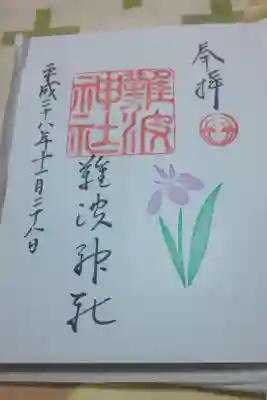 奉拝
難波神社
難波神社
平成二十八年十一月二十八日